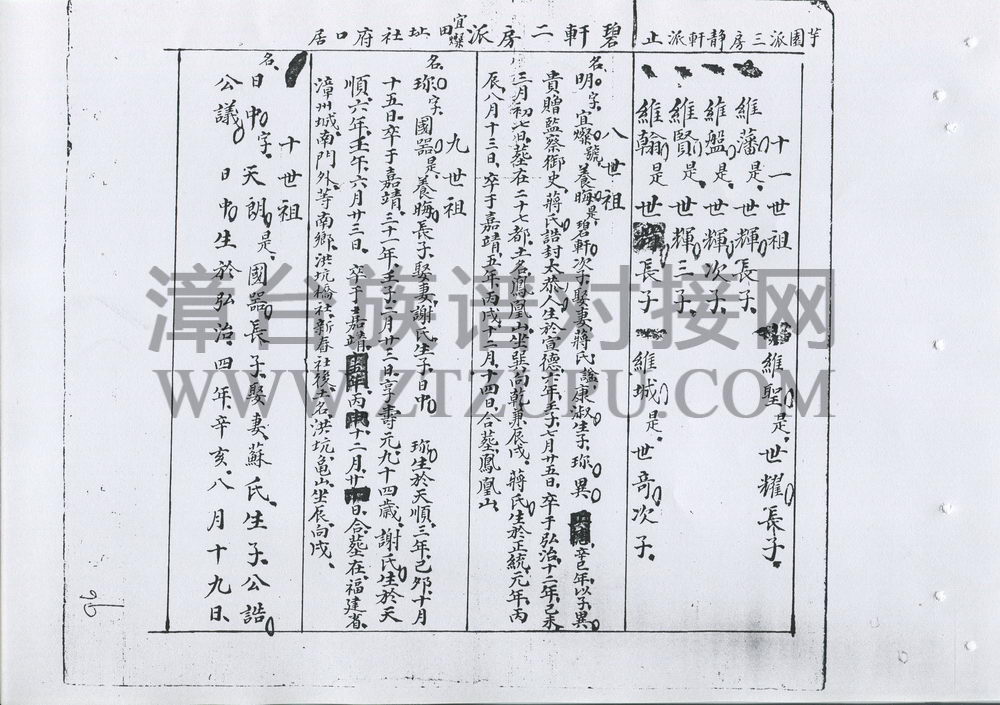 芋園派三房靜軒派止
碧軒二房派宜燦田址社府口居
十一世祖
維藩是世輝長子
維聖是世耀長子
維盤是世輝次子
維賢是世輝三子
維翰是世長子
維城是世奇次子
八世祖
名明字宜燦號養晦是碧軒次子娶妻蔣氏謚康淑生子珎異 辛巳年以子異
貴贈監察御史蔣氏誥封太恭人生於宣德六年壬子七月廿五日卒于弘治十二年己未
三月初七日墓在二十七都土名鳳凰山坐巽向乾兼辰戌蔣氏生於正統元年丙
辰八月十三日卒于嘉靖五年丙戌十二月十四日合墓鳳凰山
九世祖
名珎字國器是養晦長子娶妻謝氏生子日中 珎生於天順三年己夘十月
十五日卒于嘉靖三十一年壬子二月廿三日享壽元九十四歲謝氏生於天
順六年壬午六月廿三日卒于嘉靖年丙申十二月廿日合墓在福建省
漳州城南門外等南鄉洪坑橋社新春社後土名洪坑亀山坐辰向戌
十世祖
名日中字天朗是國器長子娶妻蘇氏生子公誥
公議 日中生於弘治四年辛亥八月十九日
漳台族谱对接网
WWW.ZTZUPU.COM